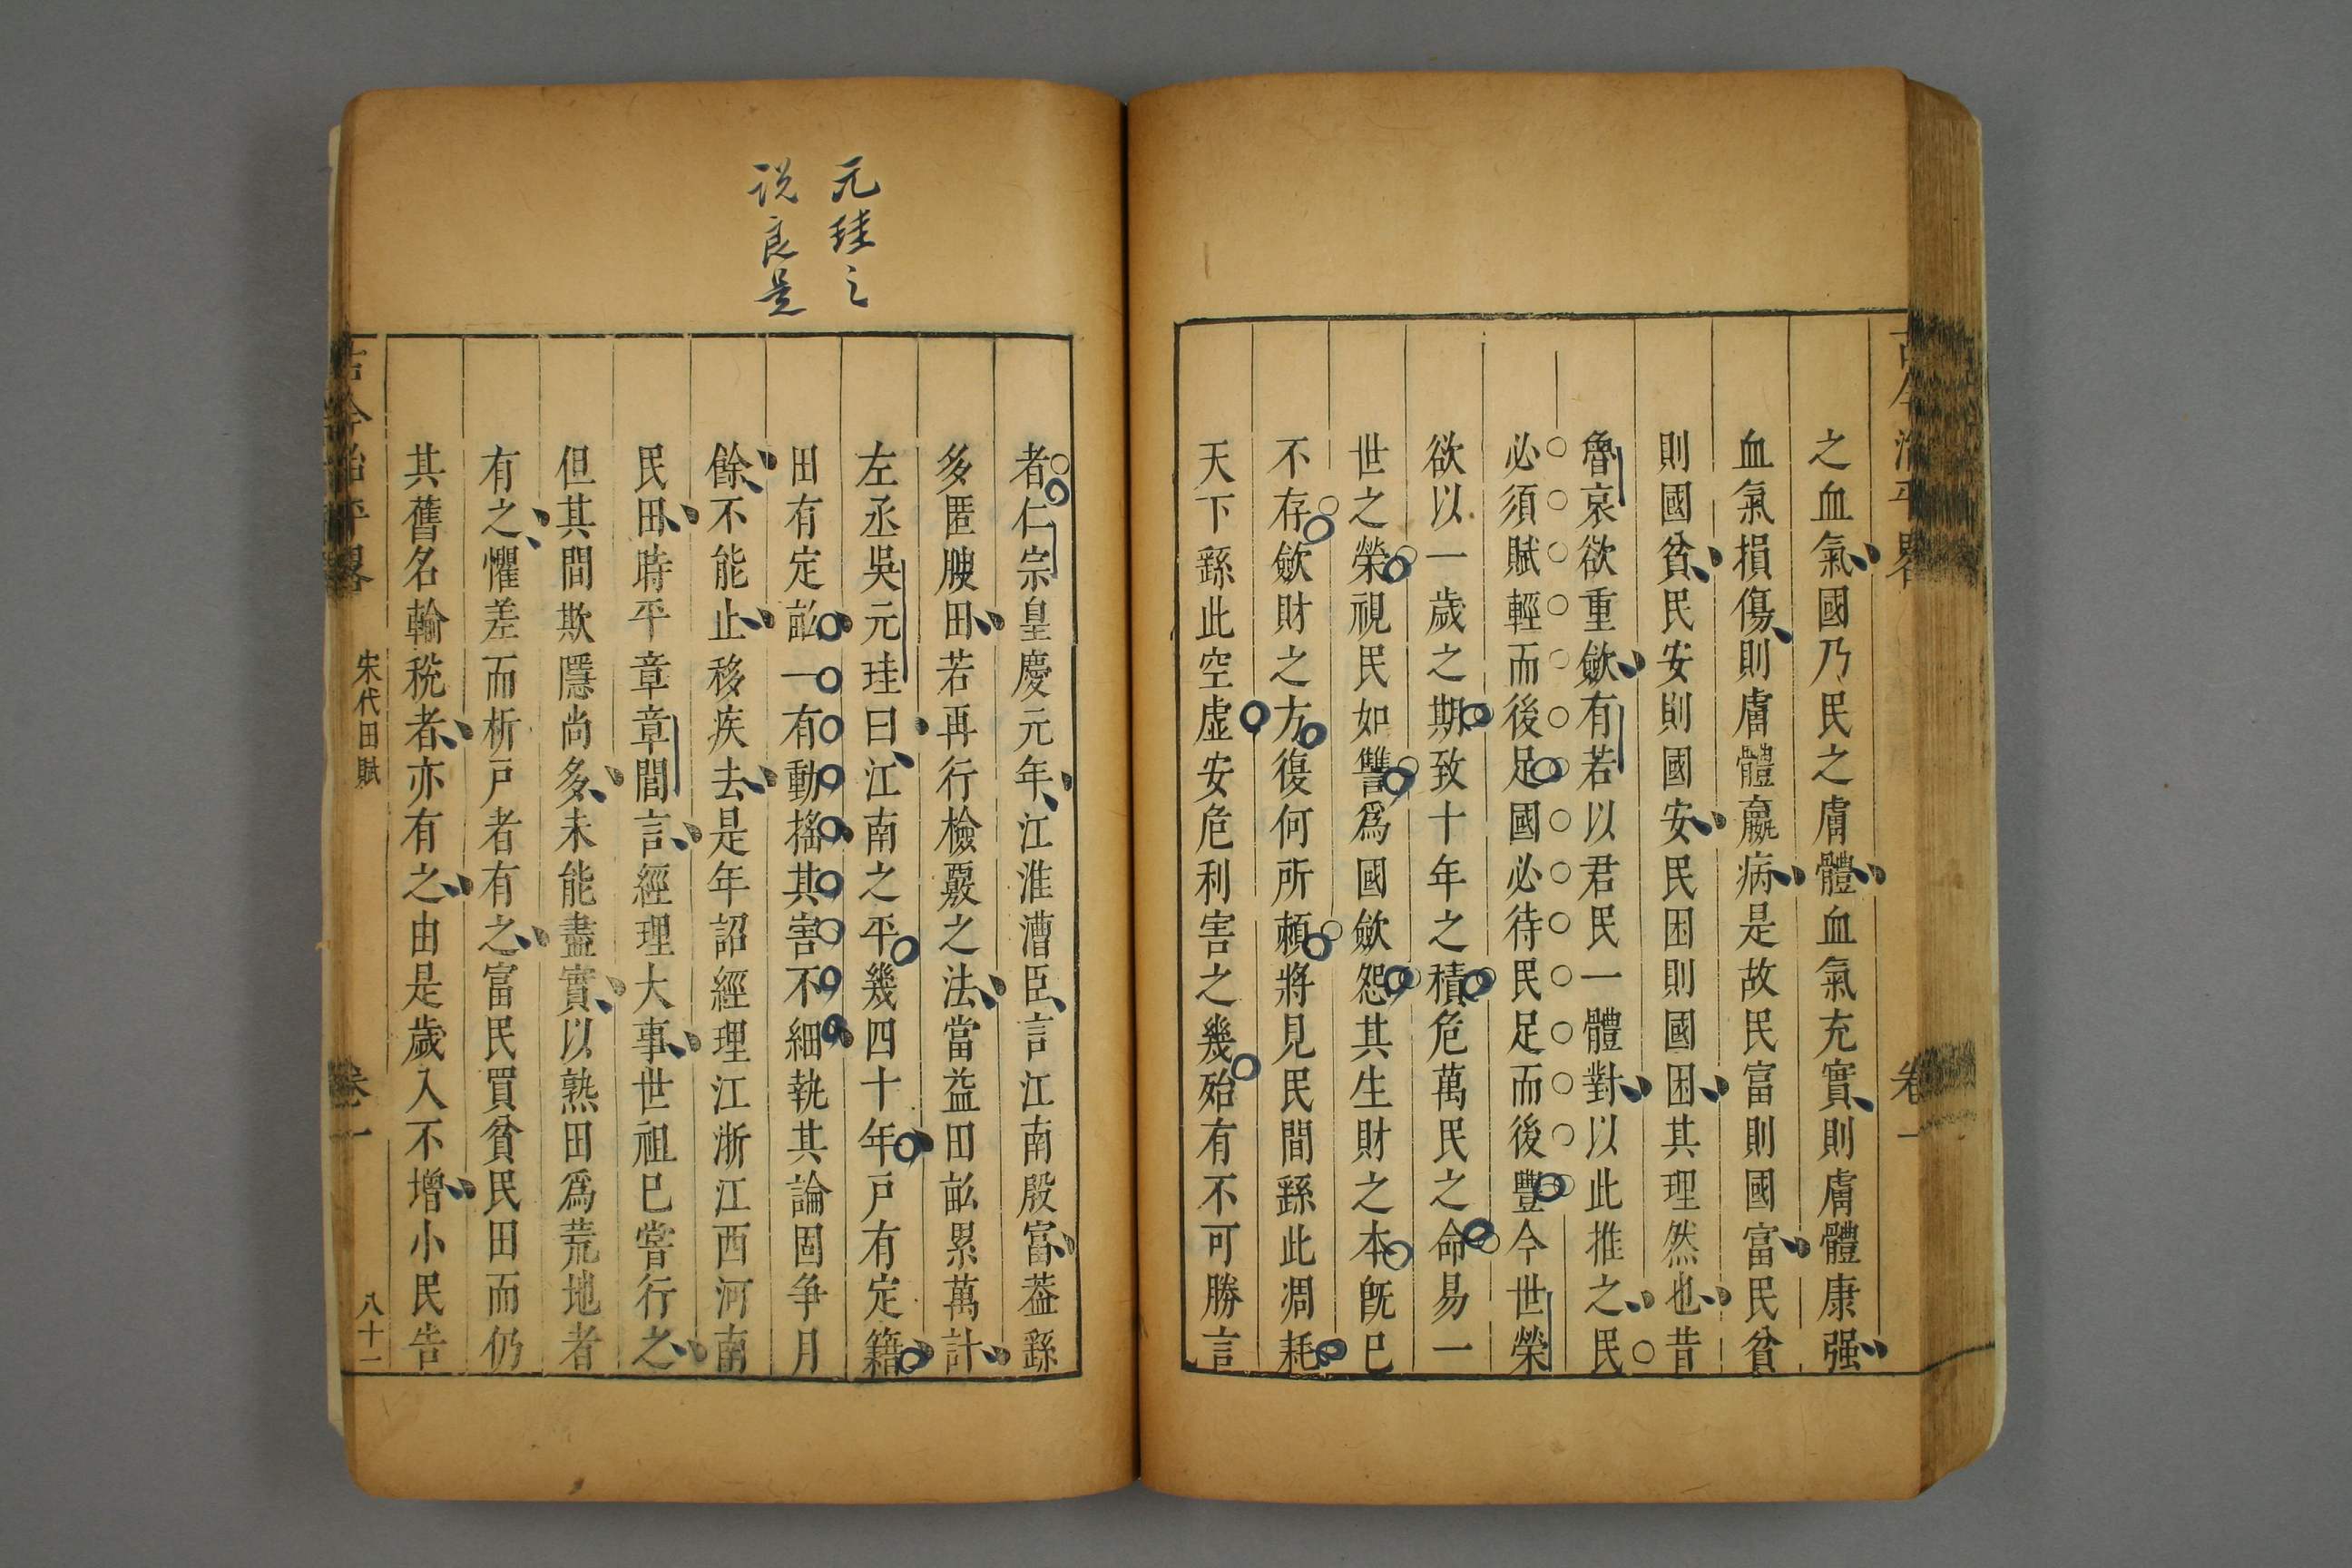 之血氣國乃民之膚體血氣充實則膚體康强
血氣損傷則膚體羸病是故民富則國富民貧
則國貧民安則國安民困則國困其理然也昔
魯哀欲重歛有若以君民一體對以此推之民
必須賦輕而後足國必待民足而後豐今世榮
欲以一歲之期致十年之積危萬民之命易一
世之榮視民如讐爲國歛怨其生財之本旣巳
不存歛財之方復何所賴將見民間繇此凋耗
天下繇此空虛安危利害之幾殆有不可勝言
古今治平畧
卷一
元珪之
说良是
者仁宗皇慶元年江淮漕臣言江南殷富葢繇
多匿腴田若再行檢覈之法當益田畝累萬計
左丞吳元珪曰江南之平幾四十年戸有定籍
田有定畝一有動搖其害不細執其論固争月
餘不能止移疾去是年詔經理江浙江西河南
民田時平章章閭言經理大事世祖巳嘗行之
但其間欺隱尚多未能盡實以熟田爲荒地者
有之懼差而析戸者有之富民買貧民田而仍
其舊名輸稅者亦有之由是歲入不增小民告
古今治平畧
宋代田賦
卷一
八十一